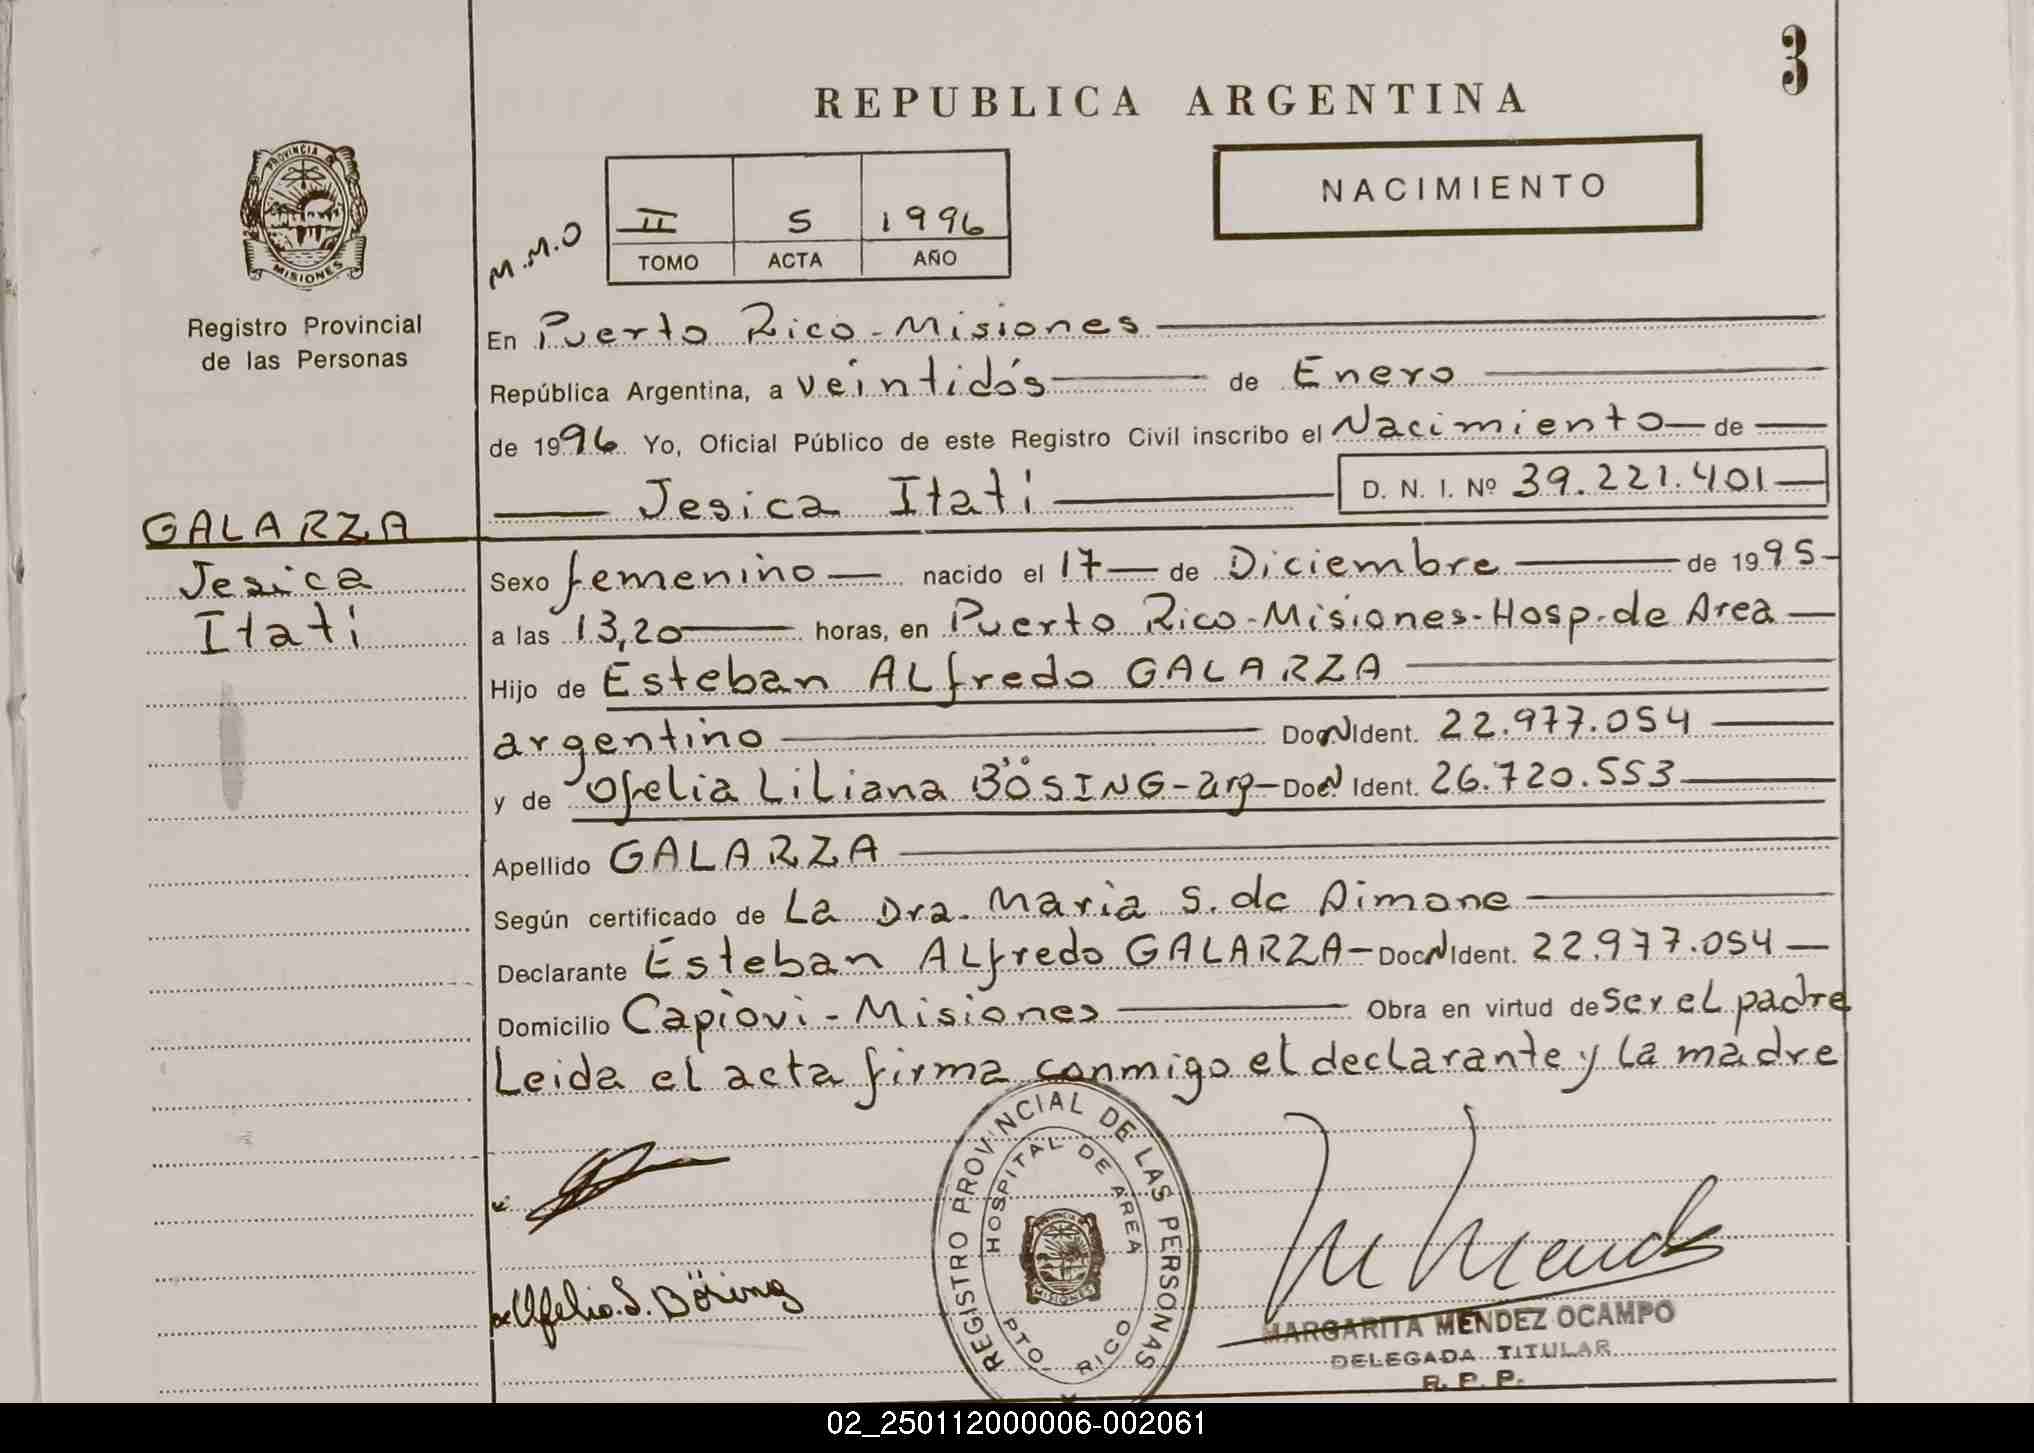 3
REPUBLICA ARGENTINA
NACIMIENTO
PROVINCIA DE
MISIONES
Registro Provincial
de las Personas
M.M.O
II 5 1996
TOMO ACTA AÑO
En Puerto Rico - Misiones
República Argentina, a veintidós de Enero
de 1996 Yo, Oficial Público de este Registro Civil inscribo el Nacimiento de
Jesica Itatí D. N. I. Nº 39.221.401
GALARZA
Jesica
Itatí
Sexo femenino nacido el 17 de Diciembre de 1995
a las 13,20 horas, en Puerto Rico-Misiones-Hosp. de Area
Hijo de Esteban ALfredo GALARZA
argentino Doc N Ident. 22.977.054
y de Ofelia LiLiana BÖSING-arg- Doc N Ident. 26.720.553
Apellido GALARZA
Según certificado de La Dra. Maria S. de Aimone
Declarante Esteban ALfredo GALARZA- Doc N Ident. 22.977.054
Domicilio Capiovi - Misiones Obra en virtud de ser eL padre
Leida el acta firma conmigo el declarante y la madre
REGISTRO PROVINCIAL DE LAS PERSONAS
HOSPITAL DE AREA
MISIONES
PTO. RICO
Ofelia L. Bösing
MARGARITA MENDEZ OCAMPO
DELEGADA TITULAR
R. P. P.
02_250112000006-002061